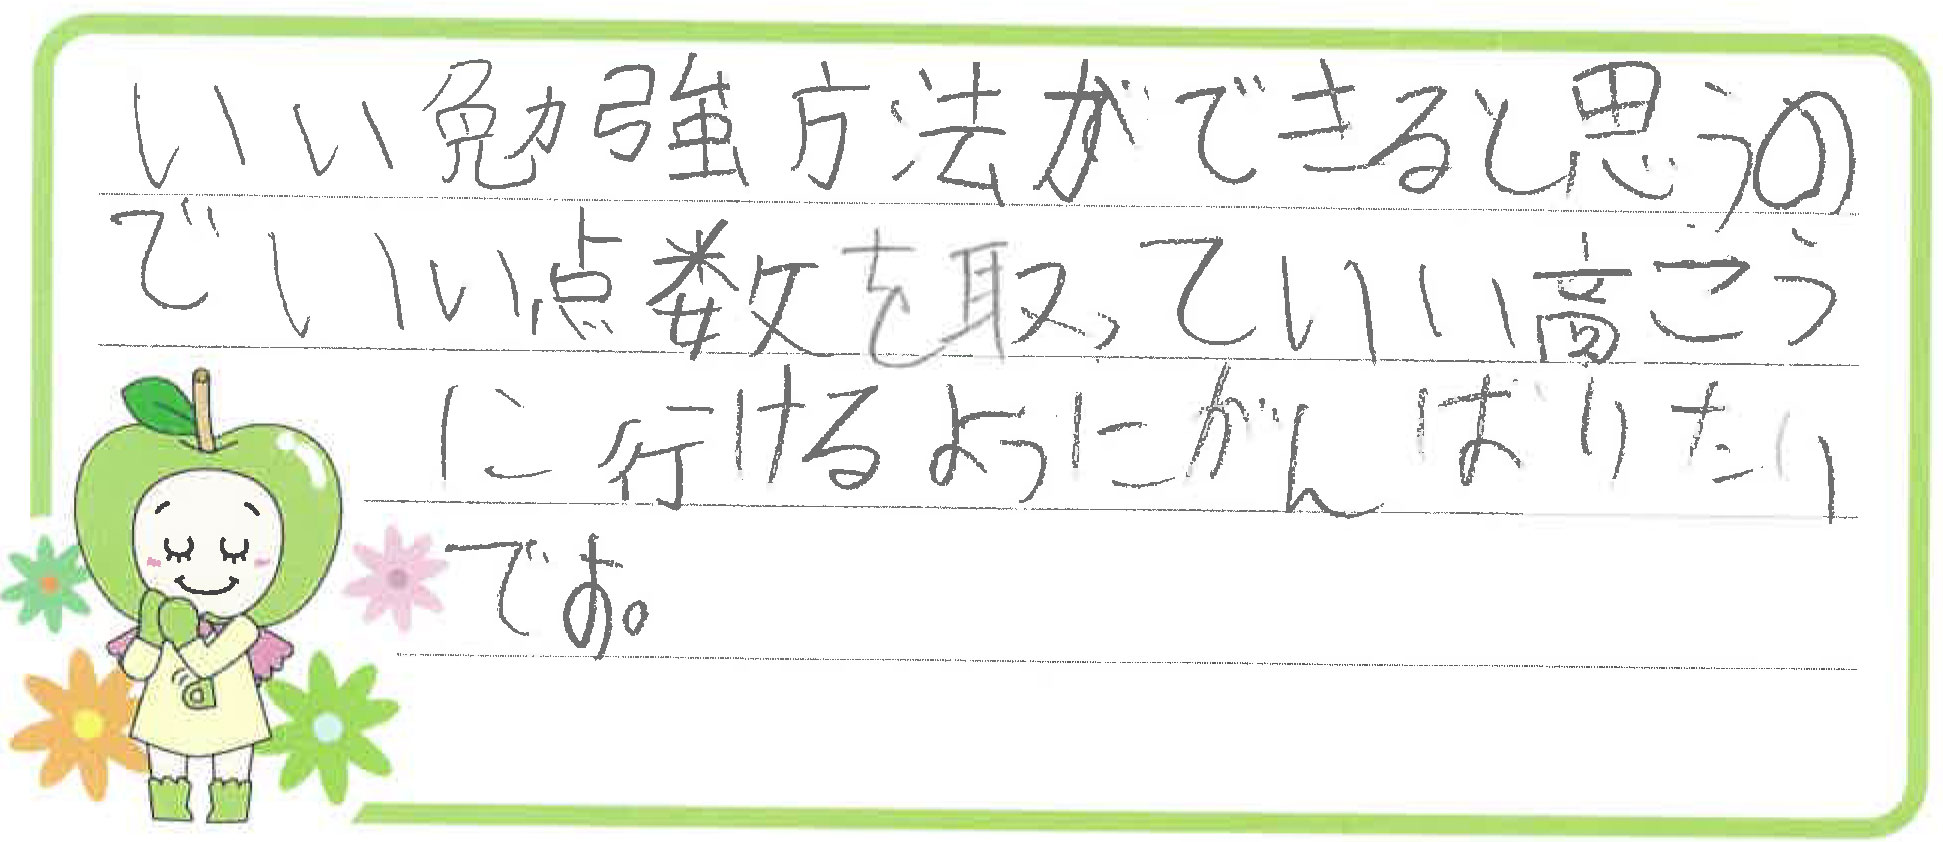 いい勉強方法ができると思うの
でいい点数を取っていい高こう
に行けるようにがんばりたい
です。